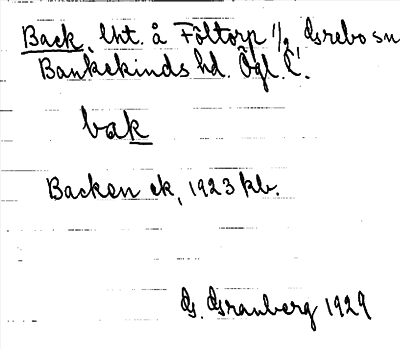 Back, lht. å Föltorp 1/2 Grebo sn
Bankekinds hd. Ögl. l.
bak
Backen ek, 1923 kb.
G. Granberg 1929